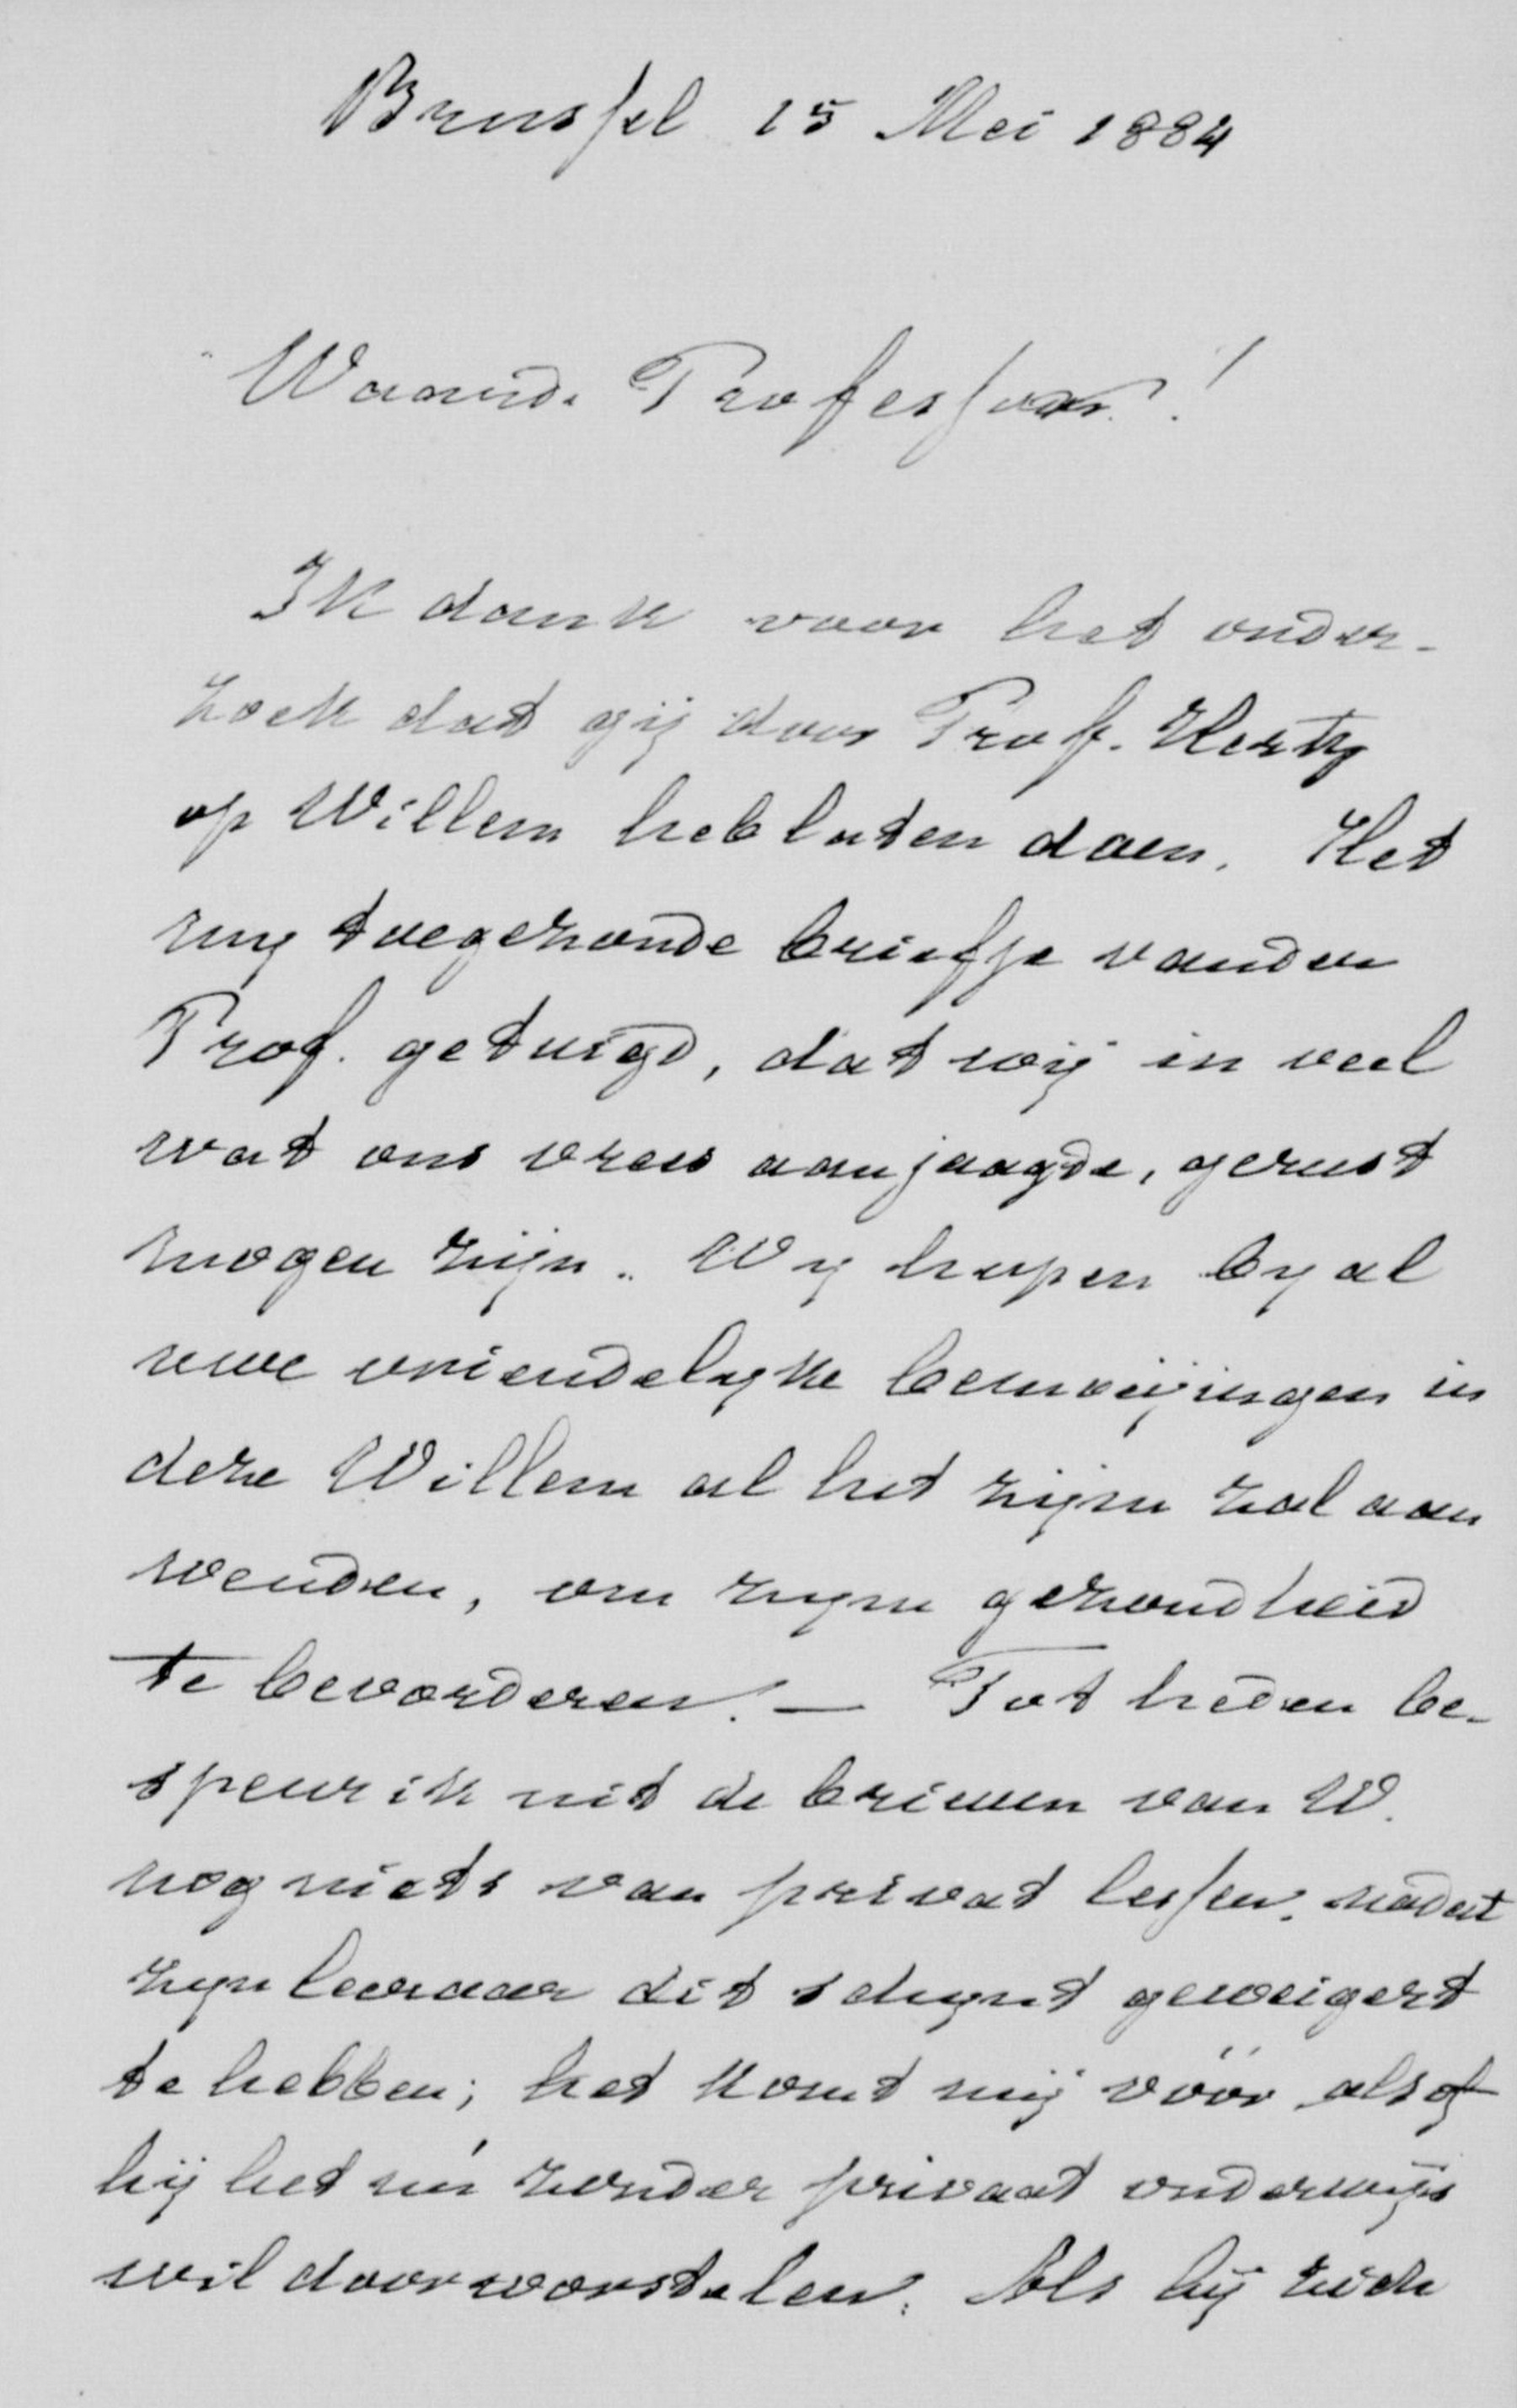 Brussel 15 Mei 1884
Waarde Professor!
Ik dank voor het onder-
zoek dat gij door Prof. Hertz
op Willem heb laten doen. Het
my toegezonde briefje vanden
Prof. getuigd, dat wij in veel
wat ons vrees aanjaagde, gerust
mogen zijn. Wy hopen by al
uwe vriendelyke bemoeijingen in
deze Willem al het zijne zal aan
wenden, om zyne gezondheid
te bevorderen. — Tot heden be-
speur ik uit de brieven van W.
nog niets van privat lessen, nadat
zyn leeraar dit schynt geweigert
te hebben; het komt mij vóór alsof
hij het nú zonder privaat onderwijs
wil doorworstelen. Als hij zich